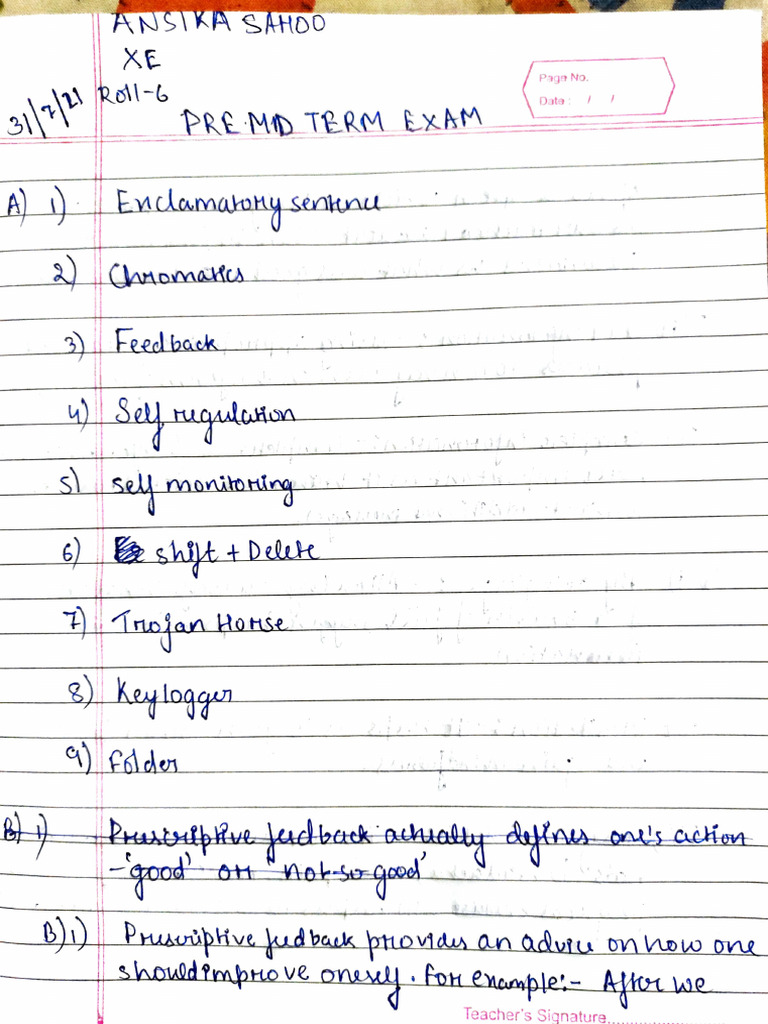 ANSIKA SAHOO
XE
Roll-6
Page No.
Date : / /
31/7/21
PRE.MID TERM EXAM
A) 1) Exclamatory sentence
2) Chromatics
3) Feedback
4) Self regulation
5) self monitoring
6) shift + Delete
7) Trojan Horse
8) Keylogger
9) folder
B) 1) Prescriptive feedback actually defines one's action
-'good' or 'not-so good'
B) 1) Prescriptive feedback provides an advice on how one
should improve oneself. For example:- After we
Teacher's Signature